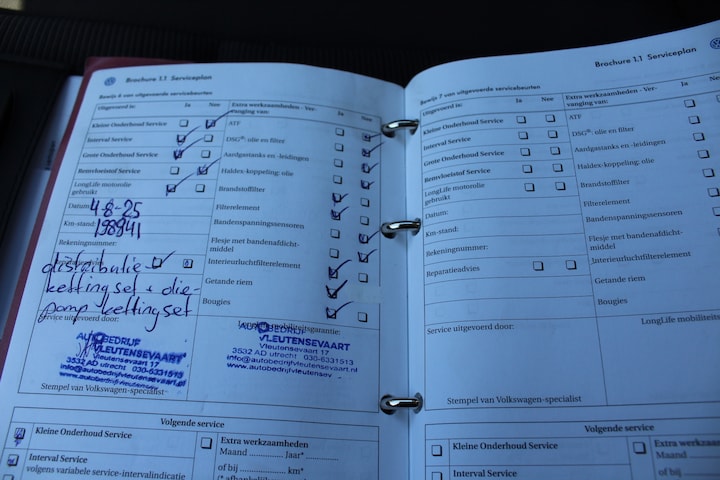 Brochure 1.1 Serviceplan
Bewijs 6 van uitgevoerde servicebeurten
Uitgevoerd is: Ja Nee
Kleine Onderhoud Service
Interval Service
Grote Onderhoud Service
Remvloeistof Service
LongLife motorolie gebruikt
Datum: 4-8-25
Km-stand: 198941
Rekeningnummer:
Reparatieadvies
distributie
kettingset + olie-
pomp kettingset
Service uitgevoerd door:
AUTOBEDRIJF
VLEUTENSEVAART
Vleutensevaart 17
3532 AD utrecht 030-6331513
info@autobedrijfvleutensevaart.nl
www.autobedrijfvleutensevaart.nl
Stempel van Volkswagen-specialist
Extra werkzaamheden - Ver-
vanging van: Ja Nee
ATF
DSG®: olie en filter
Aardgastanks en -leidingen
Haldex-koppeling: olie
Brandstoffilter
Filterelement
Bandenspanningssensoren
Flesje met bandenafdicht-
middel
Interieurluchtfilterelement
Getande riem
Bougies
mobiliteitsgarantie:
AUTOBEDRIJF
VLEUTENSEVAART
Vleutensevaart 17
3532 AD utrecht 030-6331513
info@autobedrijfvleutensevaart.nl
www.autobedrijfvleutensev
Volgende service
Kleine Onderhoud Service
Interval Service
volgens variabele service-intervalindicatie
Extra werkzaamheden
Maand .............. Jaar*
of bij .............. km*
Brochure 1.1 Serviceplan
Bewijs 7 van uitgevoerde servicebeurten
Uitgevoerd is: Ja Nee
Kleine Onderhoud Service
Interval Service
Grote Onderhoud Service
Remvloeistof Service
LongLife motorolie
gebruikt
Datum:
Km-stand:
Rekeningnummer:
Reparatieadvies
Service uitgevoerd door:
Stempel van Volkswagen-specialist
Extra werkzaamheden - Ver-
vanging van: Ja
ATF
DSG®: olie en filter
Aardgastanks en -leidingen
Haldex-koppeling: olie
Brandstoffilter
Filterelement
Bandenspanningssensoren
Flesje met bandenafdicht-
middel
Interieurluchtfilterelement
Getande riem
Bougies
LongLife mobiliteits
Volgende service
Kleine Onderhoud Service
Interval Service
Extra werkzaam
Maand
of bij